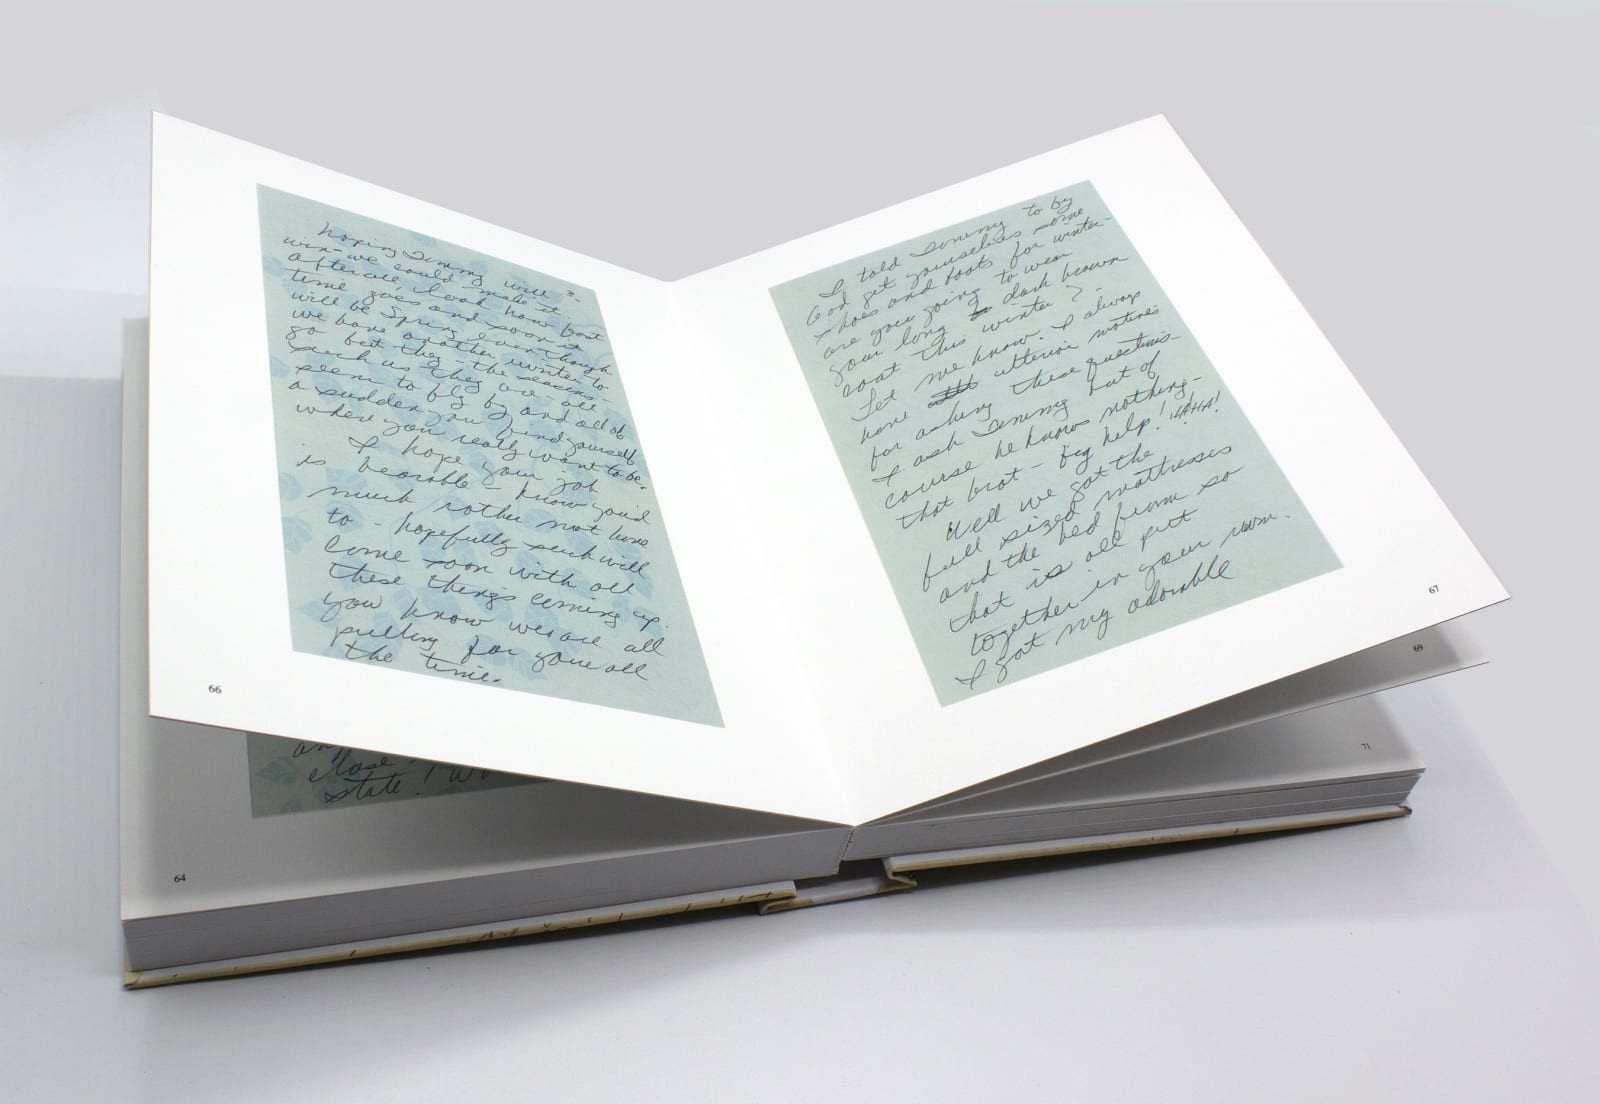 hoping Timmy will &
win - we could make it
after all, look how fast
time goes and soon it
will be Spring even though
we have another winter to
go but they the seasons
such as they are all
seem to fly by and all of
a sudden you find yourself
where you really want to be.
I hope your job
is bearable - know you'd
much rather not have
to - hopefully such will
come soon with all
these things coming up.
you know we're all
pulling for you all
the time.
66
I told Timmy to by
God get yourselves some
shoes and boots for winter -
are you going to wear
your long dark brown
coat this winter?
Let me know. I always
have ulterior motives
for asking these questions -
I ask Timmy but of
course he knows nothing -
that brat - big help!!! HAHA!
Well we got the
full sized mattresses
and the bed frame so
that is all put
together in your room.
I got my adorable
67
69
71
close
state!
64